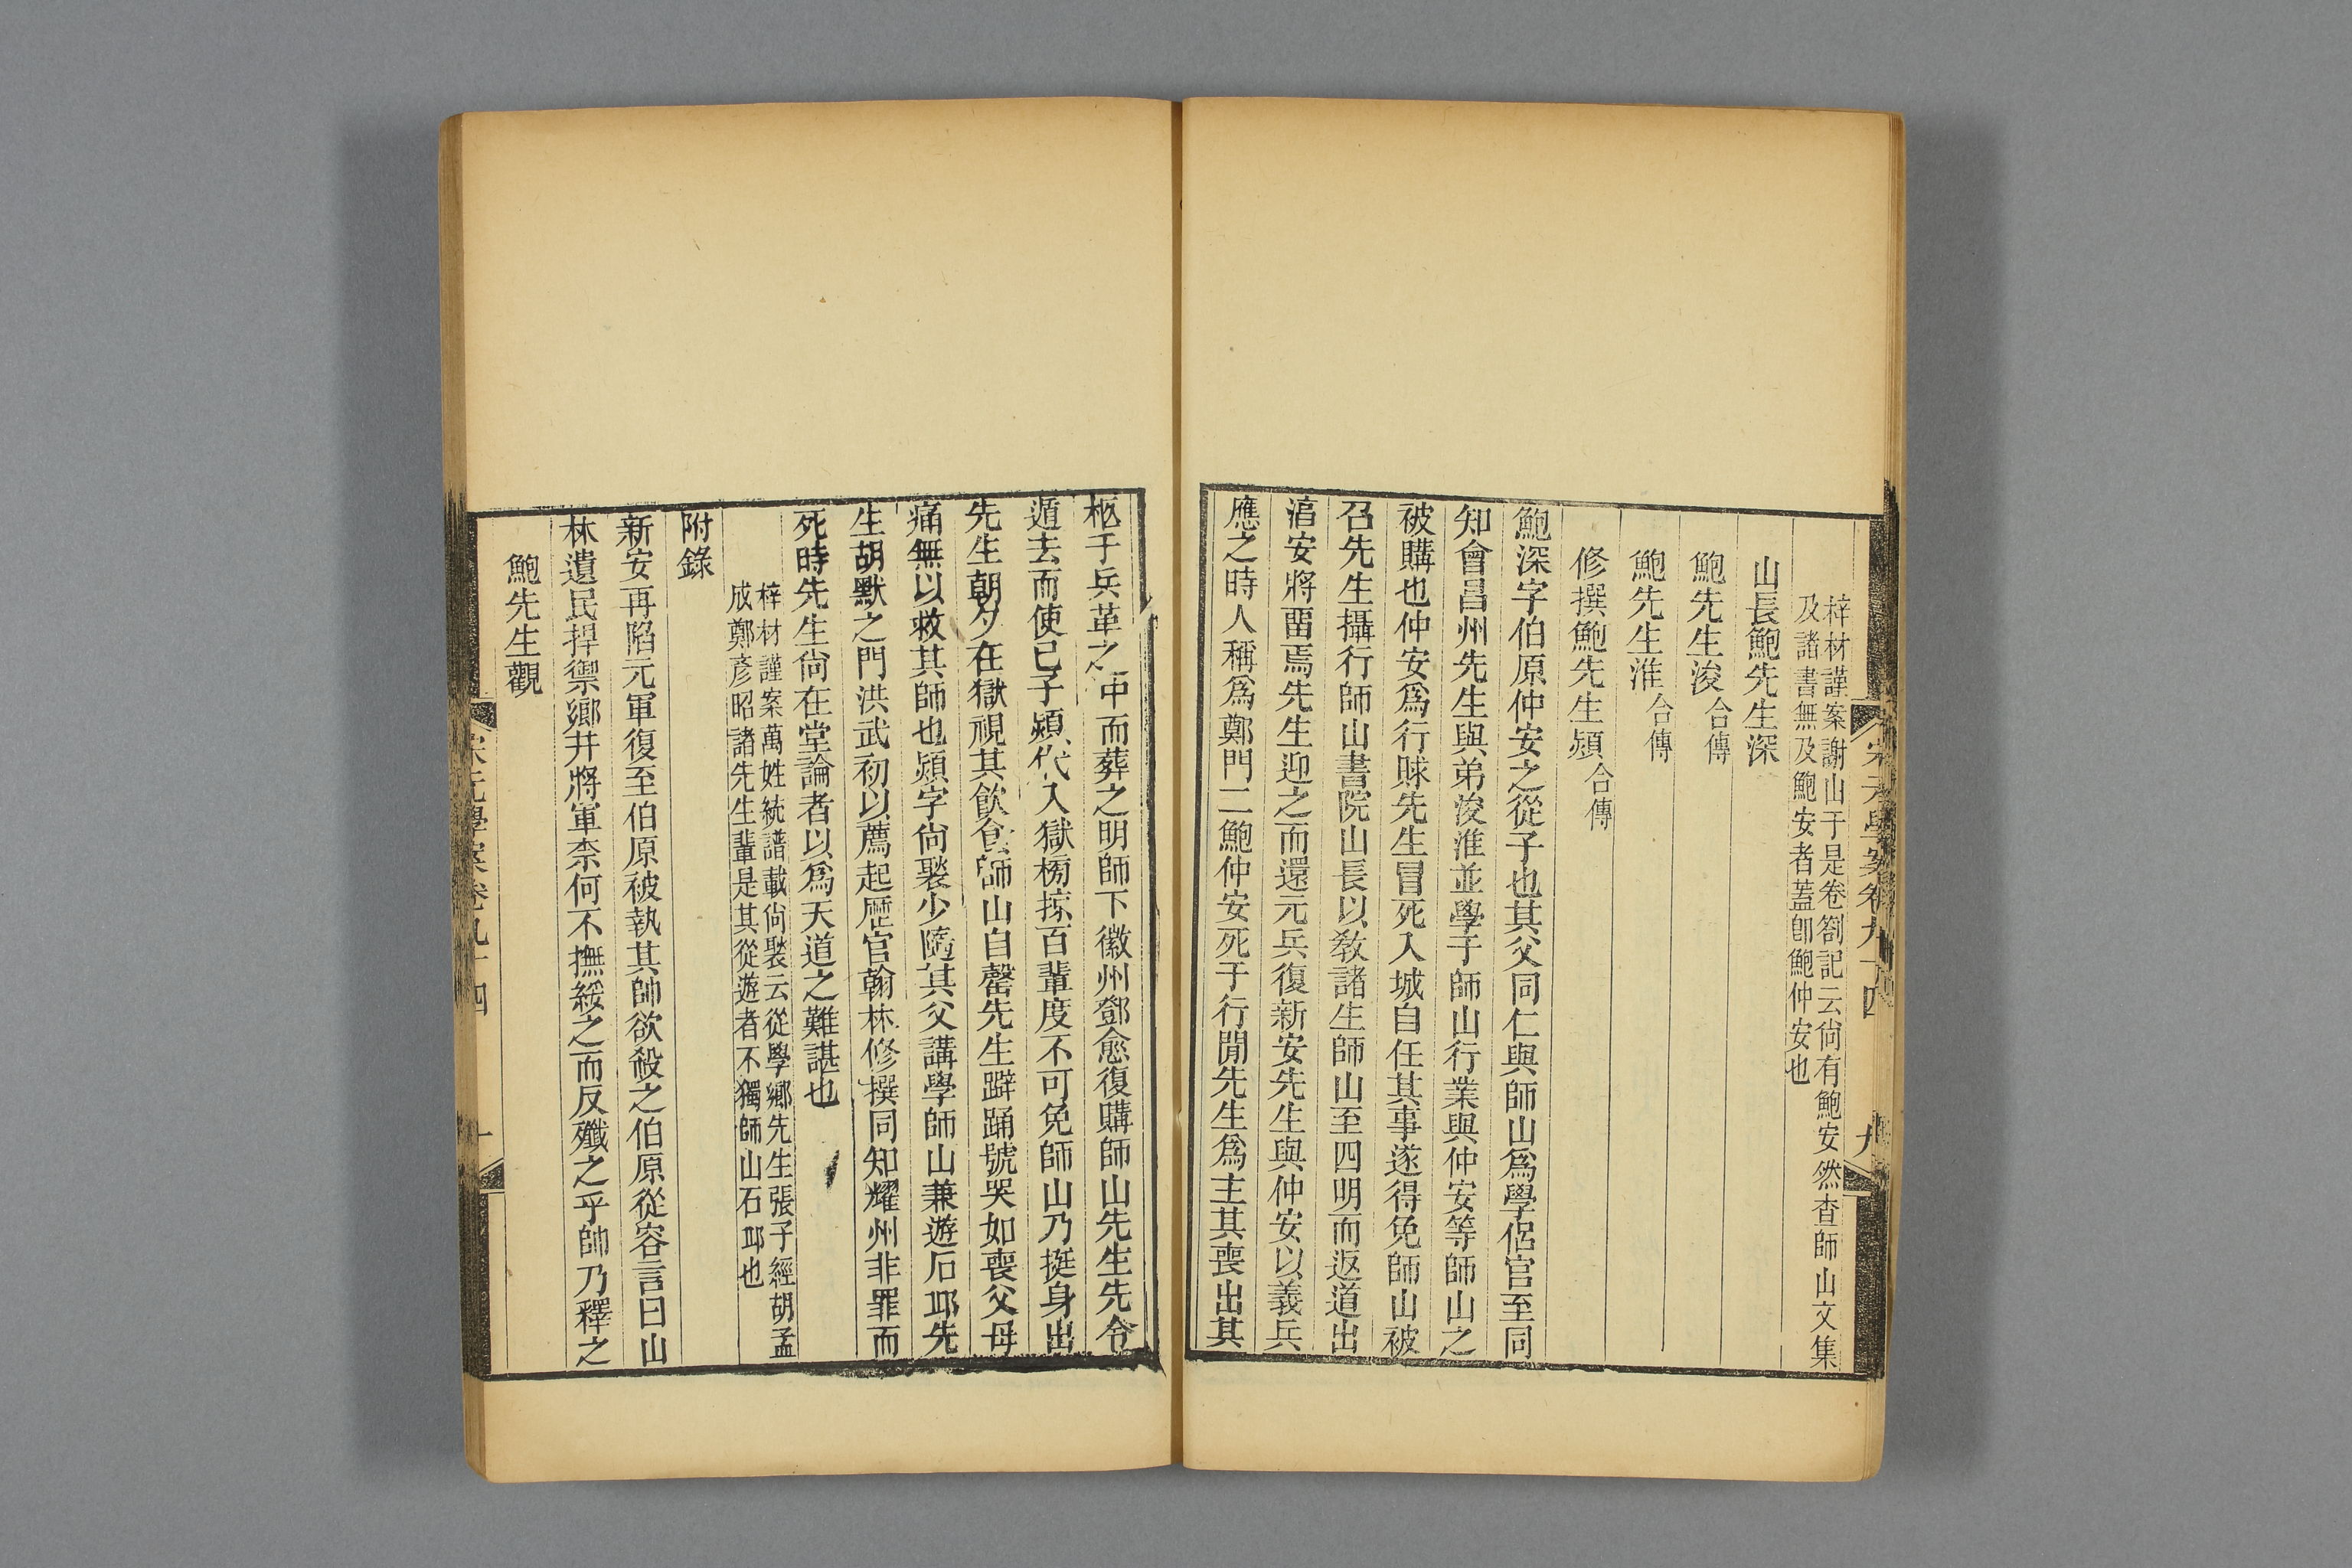 宋元學案卷九十四
九
梓材謹案謝山于是卷劄記云尙有鮑安然查師山文集
及諸書無及鮑安者蓋卽鮑仲安也
山長鮑先生深
鮑先生浚合傳
鮑先生淮合傳
修撰鮑先生熲合傳
鮑深字伯原仲安之從子也其父同仁與師山爲學侶官至同
知會昌州先生與弟浚淮並學于師山行業與仲安等師山之
被購也仲安爲行賕先生冒死入城自任其事遂得免師山被
召先生攝行師山書院山長以敎諸生師山至四明而返道出
淯安將畱焉先生迎之而還元兵復新安先生與仲安以義兵
應之時人稱爲鄭門二鮑仲安死于行閒先生爲主其喪出其
柩于兵革之中而葬之明師下徽州鄧愈復購師山先生先令
遁去而使已子熲代入獄榜掠百輩度不可免師山乃挺身出
先生朝夕在獄視其飮食師山自罄先生躃踊號哭如喪父母
痛無以救其師也熲字尙褧少隨其父講學師山兼遊石邱先
生胡默之門洪武初以薦起歷官翰林修撰同知耀州非罪而
死時先生尙在堂論者以爲天道之難諶也
梓材謹案萬姓統譜載尙褧云從學鄉先生張子經胡孟
成鄭彥昭諸先生輩是其從遊者不獨師山石邱也
附錄
新安再陷元軍復至伯原被執其帥欲殺之伯原從容言曰山
林遺民捍禦鄉井將軍柰何不撫綏之而反殲之乎帥乃釋之
鮑先生觀
宋元學案卷九十四